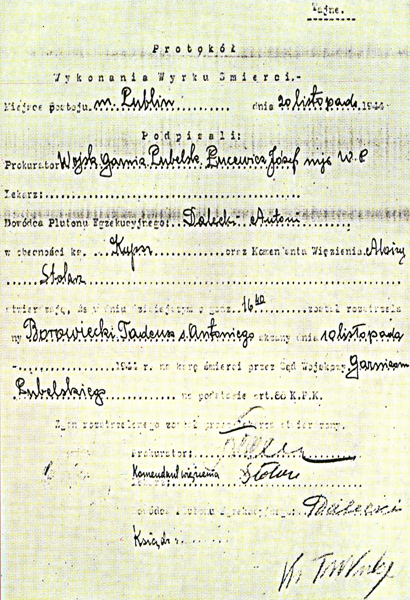 Tajne.
Protokół
Wykonania Wyrku Śmierci.-
Miejsce postoju m. Lublin dnia 20 listopada 1944
Podpisali:
Prokurator Wojsk. Garniz. Lubelsk. Pucewicz Józef mjr W.P
Lekarz:
Dowódca Plutonu Egzekucyjnego: Dalecki Antoni
w obecności ks. oraz Komendanta Więzienia Alojzy
Stolarz
stwierdzają, że w dniu dzisiejszym o godz. 16 40 został rozstrzela
ny Borowiecki Tadeusz s. Antoniego skazany dnia 10 listopada
1944 r. na karę śmierci przez Sąd Wojskowy Garnizonu
Lubelskiego na podstawie art. K.P.K.
Zgon rozstrzelanego został
Prokurator:
Komendant więzienia
Dowódca Plutonu Egzekucyjnego Dalecki
Ksiądz: